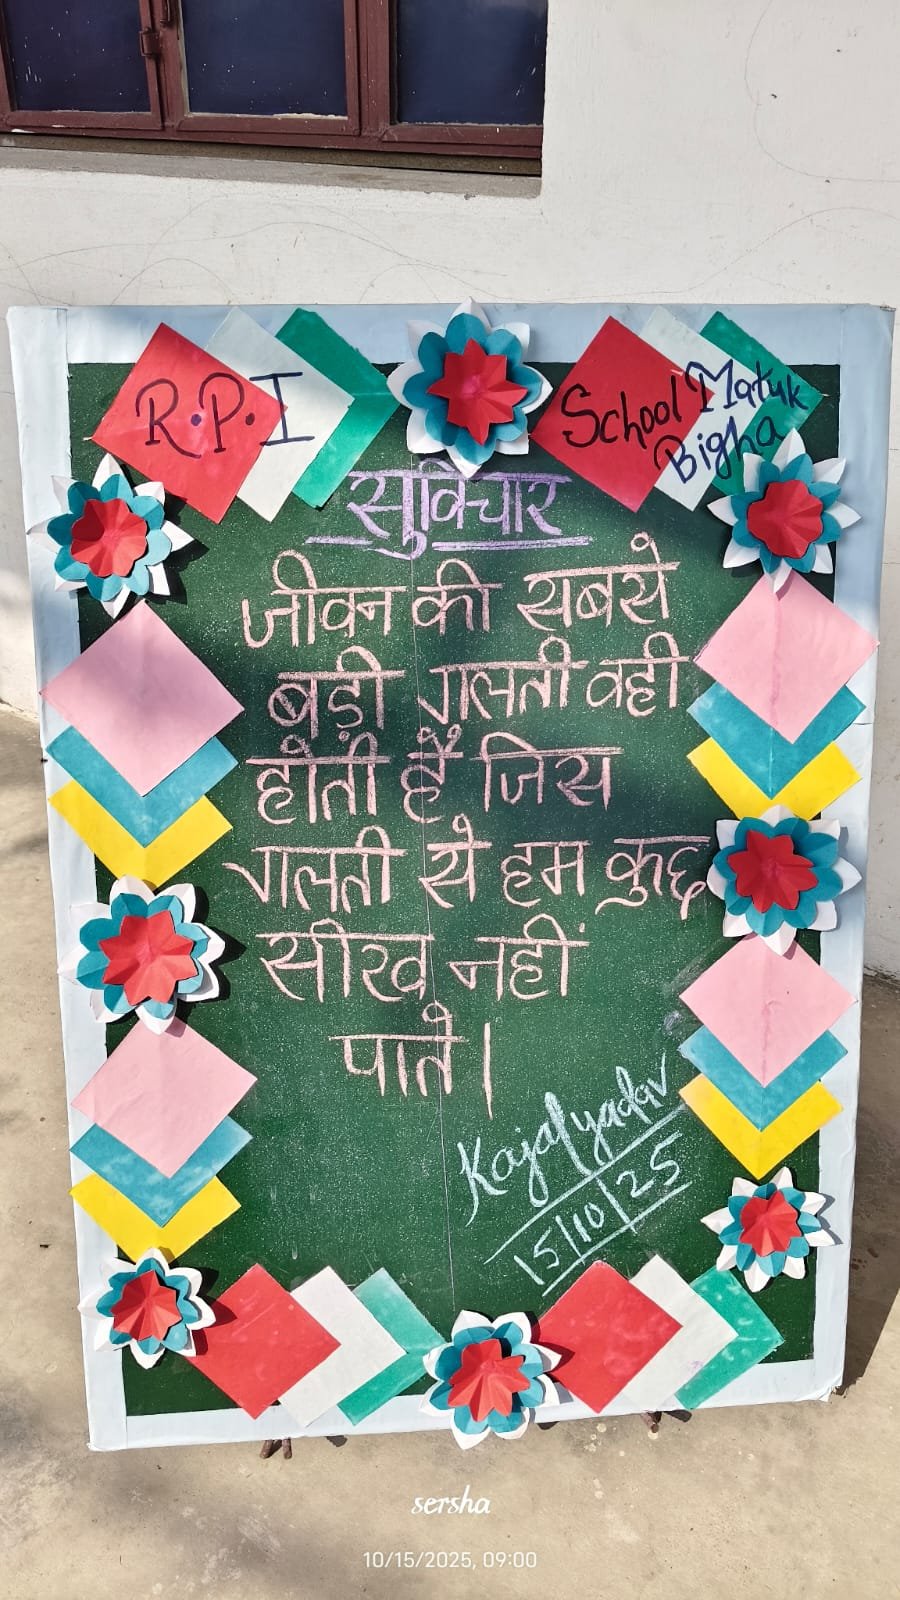 R.P.I
School Matuk
Bigha
सुविचार
जीवन की सबसे
बड़ी गलती वही
होती हैं जिस
गलती से हम कुछ
सीख नहीं
पाते।
Kajal yadav
15/10/25
sersha
10/15/2025, 09:00